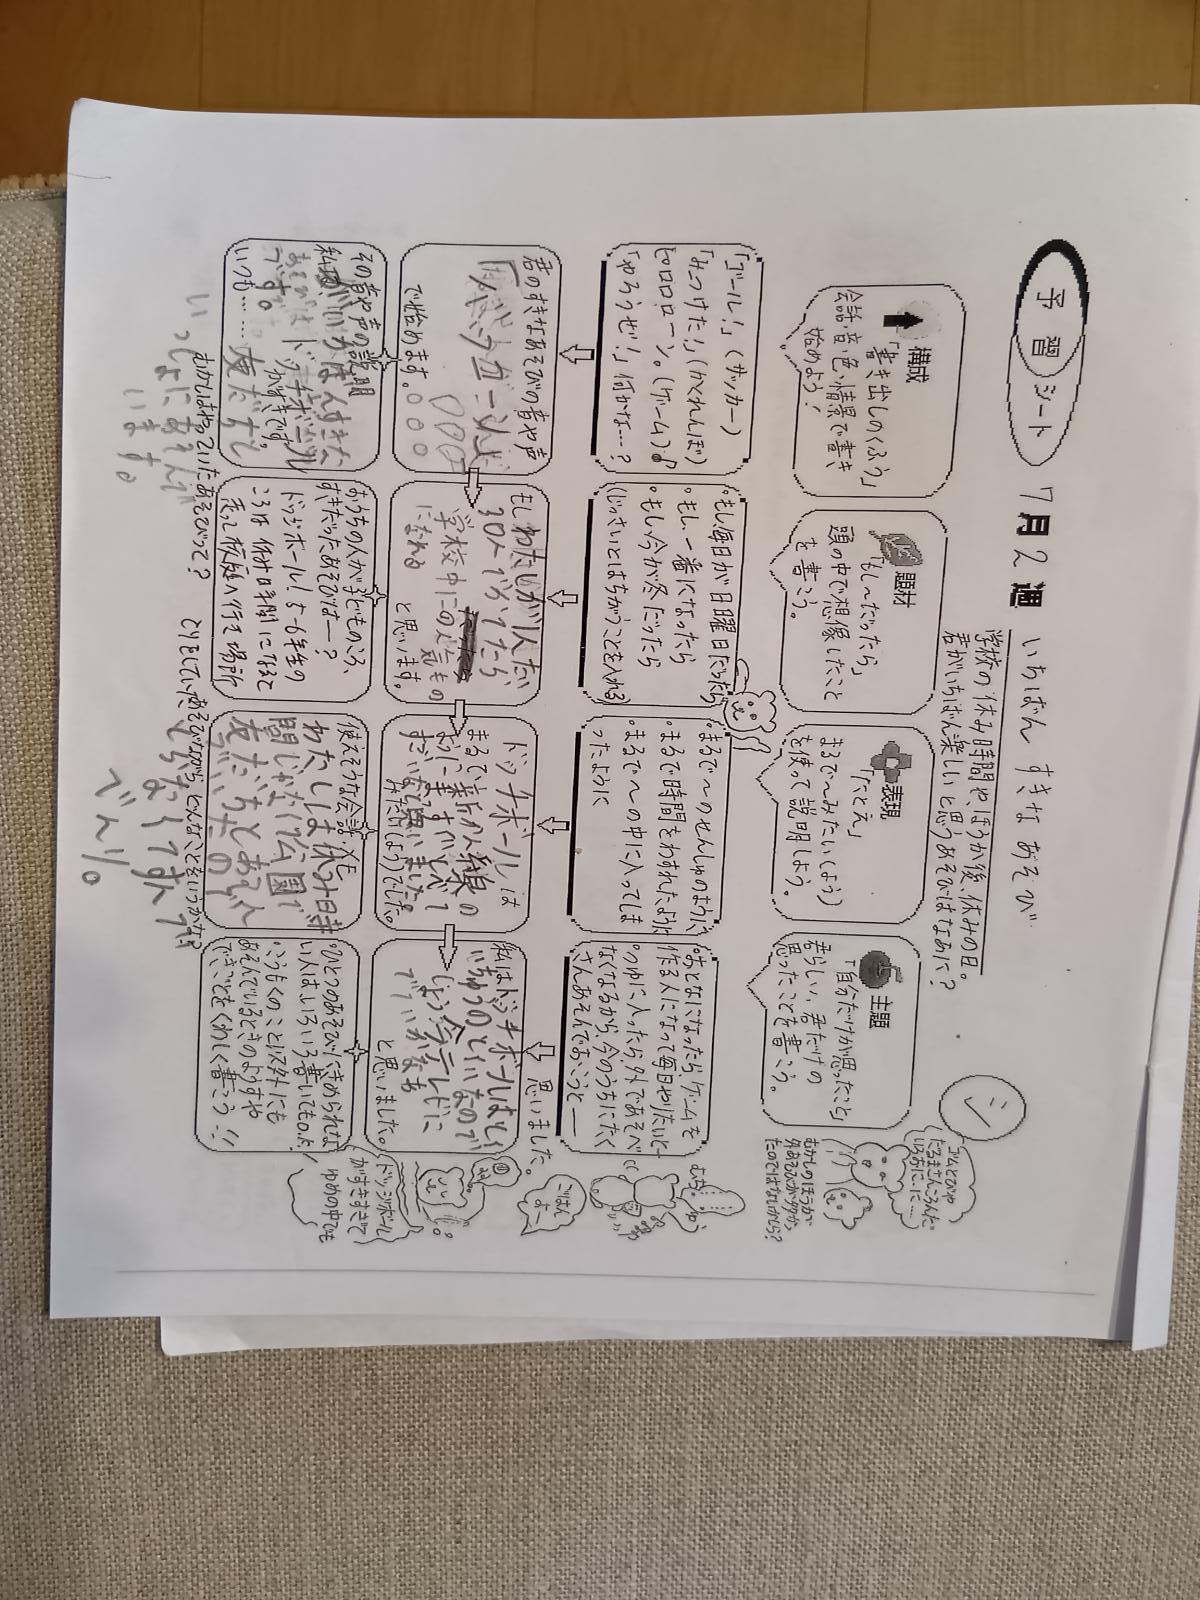 予習シート
7月2週
いちばん すきな あそび
学校の休み時間や、ほうか後、休みの日。
君がいちばん楽しいと思うあそびはなあに?
シ
構成
「書き出しのくふう」
会話・音・色・情景で書き
始めよう!
題材
「もし~だったら」
頭の中で想像したこと
を書こう。
表現
「たとえ」
まるで~みたい(よう)
を使って説明しよう。
主題
「自分だけが思ったこと」
君らしい、君だけの
思ったことを書こう。
ゴムとびや
だるまさんころんだ。
いろおに、に…
むかしのほうが
外あそびが多かっ
たのではないかしら?
「ゴール!」(サッカー)
「みつけた!」(かくれんぼ)
ピロロローン。(ゲーム)
「やろうぜ!」何かな…?
・もし毎日が日曜日だったら
・もし一番になったら
・もし今が冬だったら
(じっさいとはちがうことを入れる)
・まるで~のせんしゅのように
・まるで時間をわすれたように
・まるで~の中に入ってしま
ったように
・おとなになったら、ゲームを
作る人になって毎日やりたいと―
・つゆに入ったら、外であそべ
なくなるから、今のうちにたく
さんあそんでおこうと―
思いました。
ごはんよー
君のすきなあそびの音や声
で始めます。
もしわたしが1人だい
30人でやってたら
学校中の人気もの
になれる
と思います。
ドッチボールは
まるで新かん線の
ように
みたい(よう)でした。
私はドッチボールはとく
いちゅうのとくいなので
しょう来テレビに
でてい
と思いました。
その音や声の説明
私がいちばんすきな
あそびはドッチボール
です。
いつも……友だちと
いっしょにあそんで
います。
おうちの人が子どものころ、
すきだったあそびは―?
ドッジボール!5-6年生の
ころは休み時間になると
走って校庭へ行き場所
とりをしていた
むかしはやっていたあそびって?
使えそうな会話・発見
わたしは休み時
間じゃなく公園で
友だちとあそん
あそびながら、どんなことをいうかな?
・ひとつのあそびにきめられな
い人はいろいろ書いてもOKだよ!
・こうもくのこと以外にも
あそんでいるときのようすや
できごとをくわしく書こう…!!
ドッジボール
がすきすぎて
ゆめの中でも